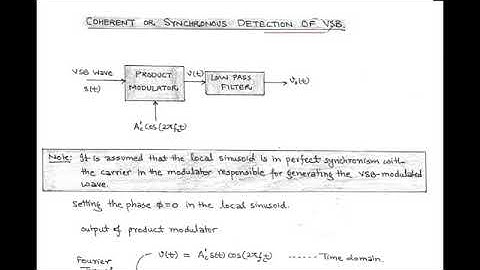 COHERENT OR SYNCHRONOUS DETECTION OF VSB.
VSB Wave
s(t)
PRODUCT
MODULATOR
v(t)
LOW PASS
FILTER
v₀(t)
A'c cos(2πfct)
Note: It is assumed that the local sinusoid is in perfect synchronism with
the carrier in the modulator responsible for generating the VSB-modulated
wave.
Setting the phase ϕ=0 in the local sinusoid.
output of product modulator
v(t) = A'c s(t) cos(2πfct) ------ Time domain.
Fourier